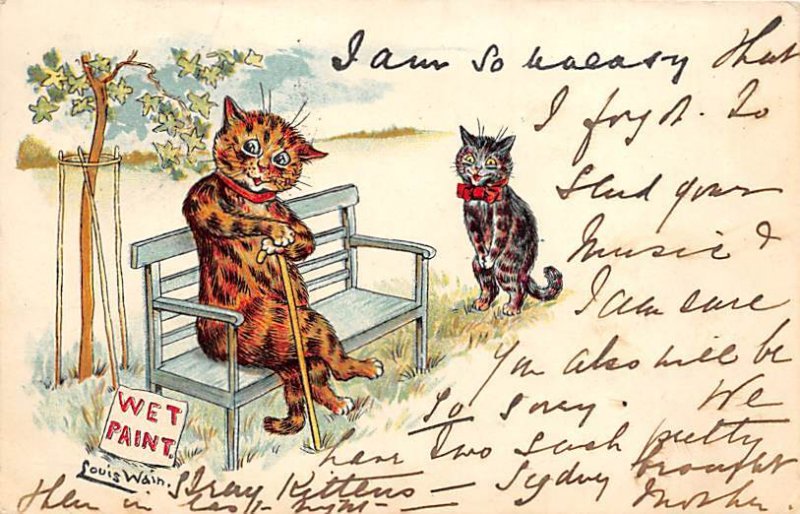 I am so uneasy that
I forgot to
send your
Music &
I am sure
You also will be
so sorry. We
have two such pretty
Stray Kittens — Sydney brought
them in last night — Mother.
WET
PAINT.
Louis Wain.